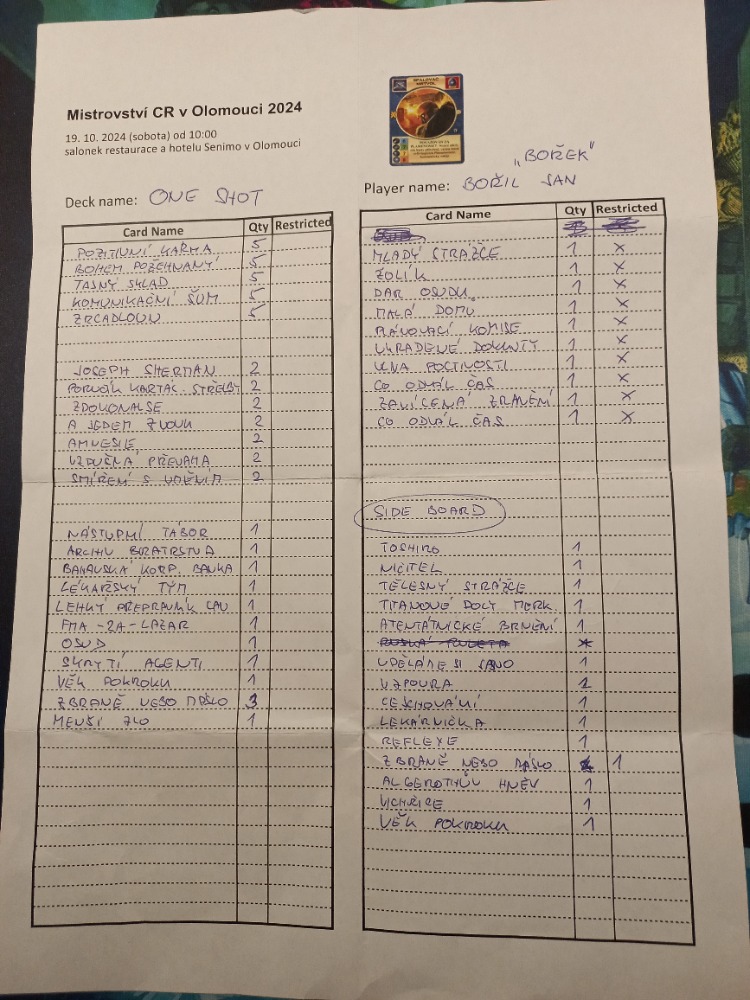 Mistrovství CR v Olomouci 2024
19. 10. 2024 (sobota) od 10:00
salonek restaurace a hotelu Senimo v Olomouci
Deck name: ONE SHOT
Card Name Qty Restricted
POZITIVNÍ KARMA 5
BOHEM POŽEHNANÝ 5
TAJNÝ SKLAD 5
KOMUNIKAČNÍ ŠUM 5
ZRCADLOUN 5
JOSEPH SHERMAN 2
KARTAC. STŘELBY 2
ZDOKONAL SE 2
A JEDEM ZNOVU 2
AMNESIE 2
VZDUŠNÁ PŘEVAHA 2
SMÍŘENÍ S 2
NÁSTUPNÍ TÁBOR 1
ARCHIV BRATRSTVA 1
BAUHAUSKÁ KORP. BANKA 1
LÉKAŘSKÝ TÝM 1
LEHKÝ PŘEPRAVNÍK 1
FMA-ZA-LAZAR 1
OSUD 1
SKRYTÍ AGENTI 1
VĚK POKROKU 1
ZBRANĚ NEBO MÁSLO 3
MENŠÍ ZLO 1
"BOŘEK"
Player name: BOŘIL JAN
Card Name Qty Restricted
MLADÝ STRÁŽCE 1 X
ŽOLÍK 1 X
DAR OSUDU 1 X
MALÁ DOMŮ 1 X
KOMISE 1 X
UKRADENÉ DOKUMENTY 1 X
VLNA POCTIVOSTI 1 X
CO ODVÁL ČAS 1 X
ZRANĚNÍ 1 X
CO ODVÁL ČAS 1 X
SIDE BOARD
TOSHIRO 1
NIČITEL 1
TĚLESNÝ STRÁŽCE 1
TITANOVÉ DOLY MERK. 1
ATENTÁTNICKÉ BRNĚNÍ 1
UDĚLÁME SI JASNO 1
VZPOURA 2
CESTOVÁNÍ 1
LÉKÁRNIČKA 1
REFLEXE 1
ZBRANĚ NEBO MÁSLO 1
ALGEROTHŮV HNĚV 1
VICHŘICE 1
VĚK POKROKU 1